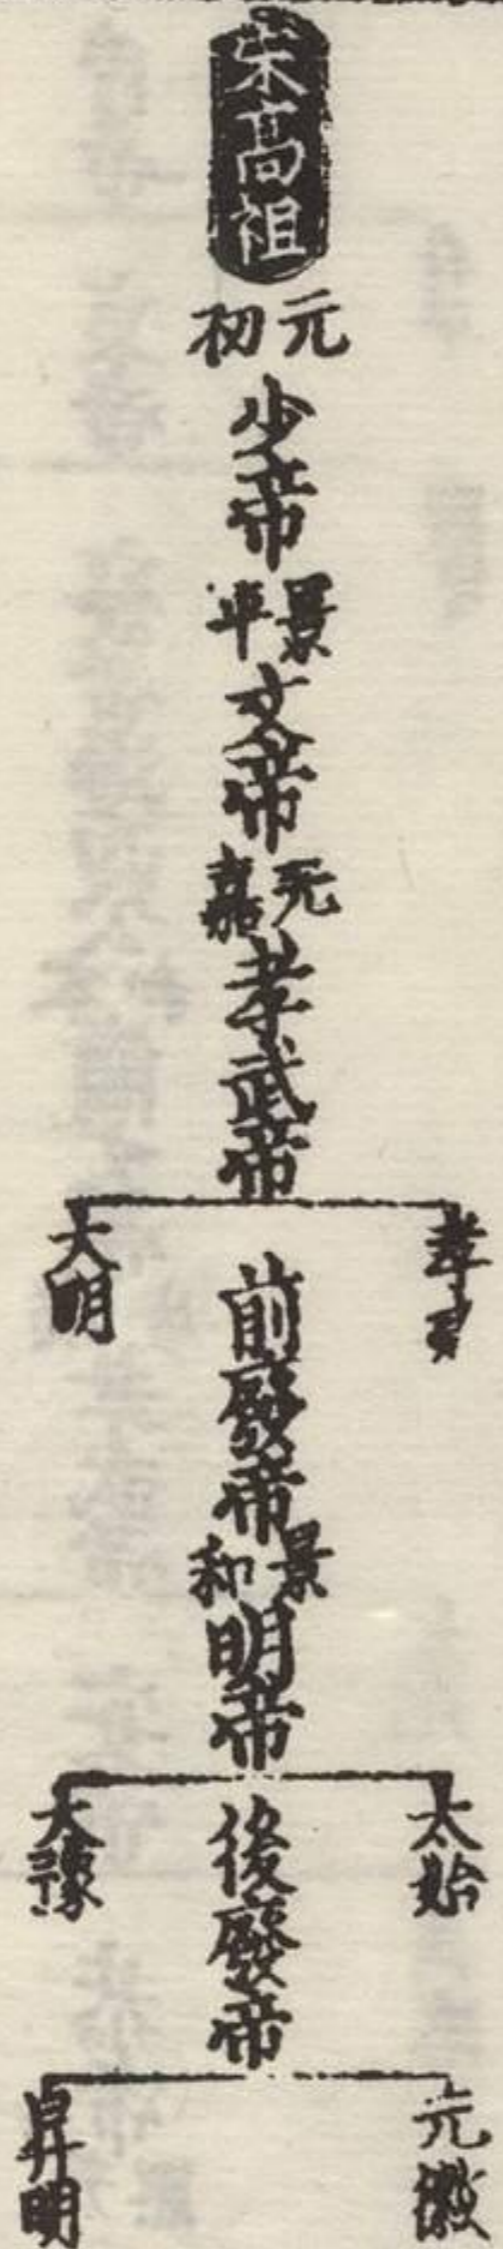 宋高祖
元初
少帝
景平
文帝
元嘉
孝武帝
孝建
大明
前廢帝
景和
明帝
太始
大豫
後廢帝
元徽
昇明